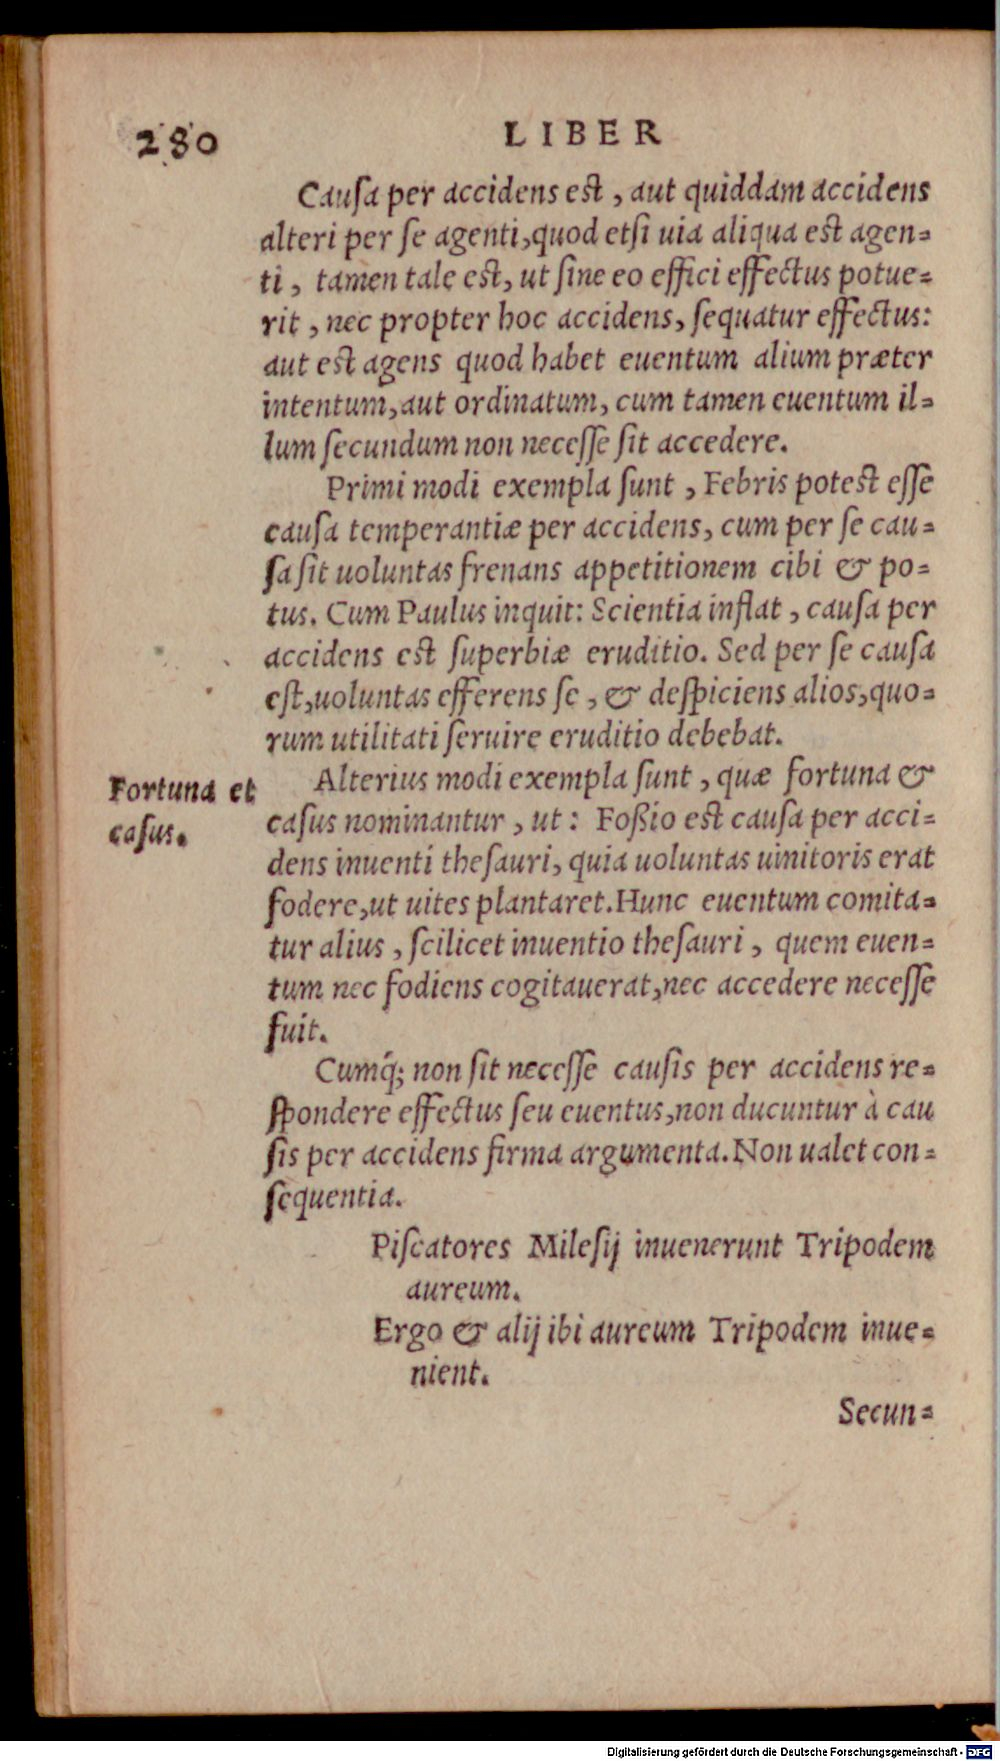 280
LIBER
Cauſa per accidens eſt, aut quiddam accidens
alteri per ſe agenti, quod etſi uia aliqua eſt agen=
ti, tamen tale eſt, ut ſine eo effici effectus potue=
rit, nec propter hoc accidens, ſequatur effectus:
aut eſt agens quod habet euentum alium præter
intentum, aut ordinatum, cum tamen euentum il=
lum ſecundum non neceſſe ſit accedere.
Primi modi exempla ſunt, Febris poteſt eſſe
cauſa temperantiæ per accidens, cum per ſe cau=
ſa ſit uoluntas frenans appetitionem cibi & po=
tus. Cum Paulus inquit: Scientia inflat, cauſa per
accidens eſt ſuperbiæ eruditio. Sed per ſe cauſa
eſt, uoluntas efferens ſe, & deſpiciens alios, quo=
rum utilitati ſeruire eruditio debebat.
Fortuna et
caſus.
Alterius modi exempla ſunt, quæ fortuna &
caſus nominantur, ut: Foßio eſt cauſa per acci=
dens inuenti theſauri, quia uoluntas uinitoris erat
fodere, ut uites plantaret. Hunc euentum comita=
tur alius, ſcilicet inuentio theſauri, quem euen=
tum nec fodiens cogitauerat, nec accedere neceſſe
fuit.
Cumq́; non ſit neceſſe cauſis per accidens re=
ſpondere effectus ſeu euentus, non ducuntur à cau
ſis per accidens firma argumenta. Non ualet con=
ſequentia.
Piſcatores Mileſij inuenerunt Tripodem
aureum.
Ergo & alij ibi aureum Tripodem inue=
nient.
Secun=
Digitalisierung gefördert durch die Deutsche Forschungsgemeinschaft - DFG